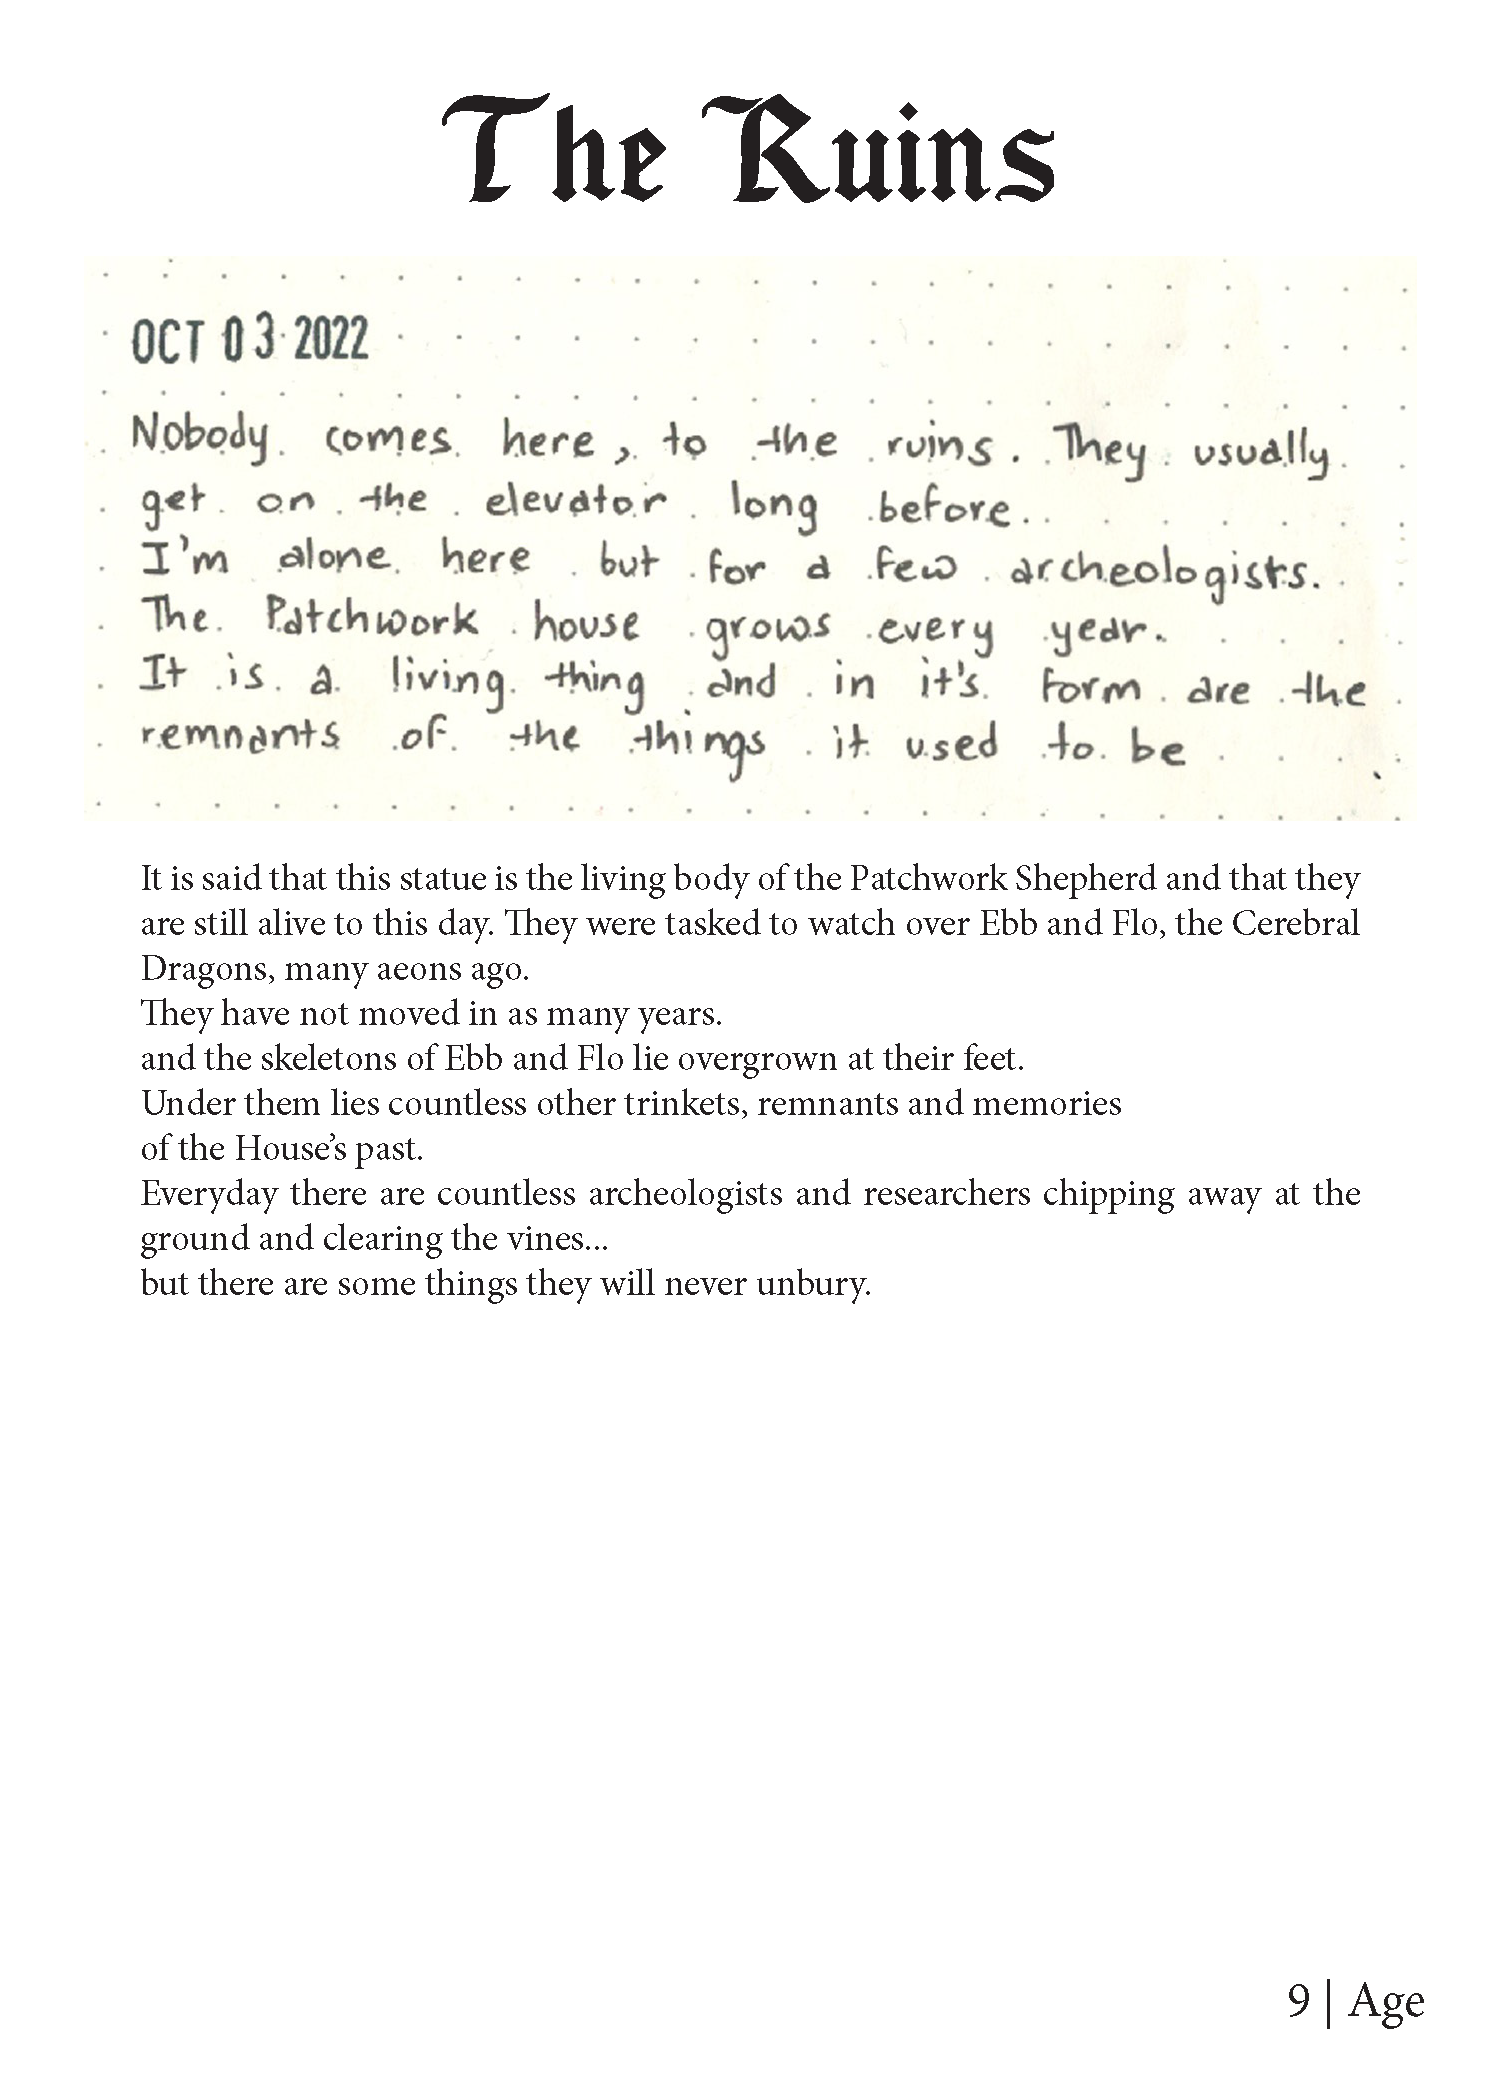 The Ruins
OCT 03 2022
Nobody comes here, to the ruins. They usually
get on the elevator long before.
I'm alone here but for a few archeologists.
The Patchwork house grows every year.
It is a living thing and in it's form are the
remnants of the things it used to be
It is said that this statue is the living body of the Patchwork Shepherd and that they
are still alive to this day. They were tasked to watch over Ebb and Flo, the Cerebral
Dragons, many aeons ago.
They have not moved in as many years.
and the skeletons of Ebb and Flo lie overgrown at their feet.
Under them lies countless other trinkets, remnants and memories
of the House's past.
Everyday there are countless archeologists and researchers chipping away at the
ground and clearing the vines...
but there are some things they will never unbury.
9 | Age